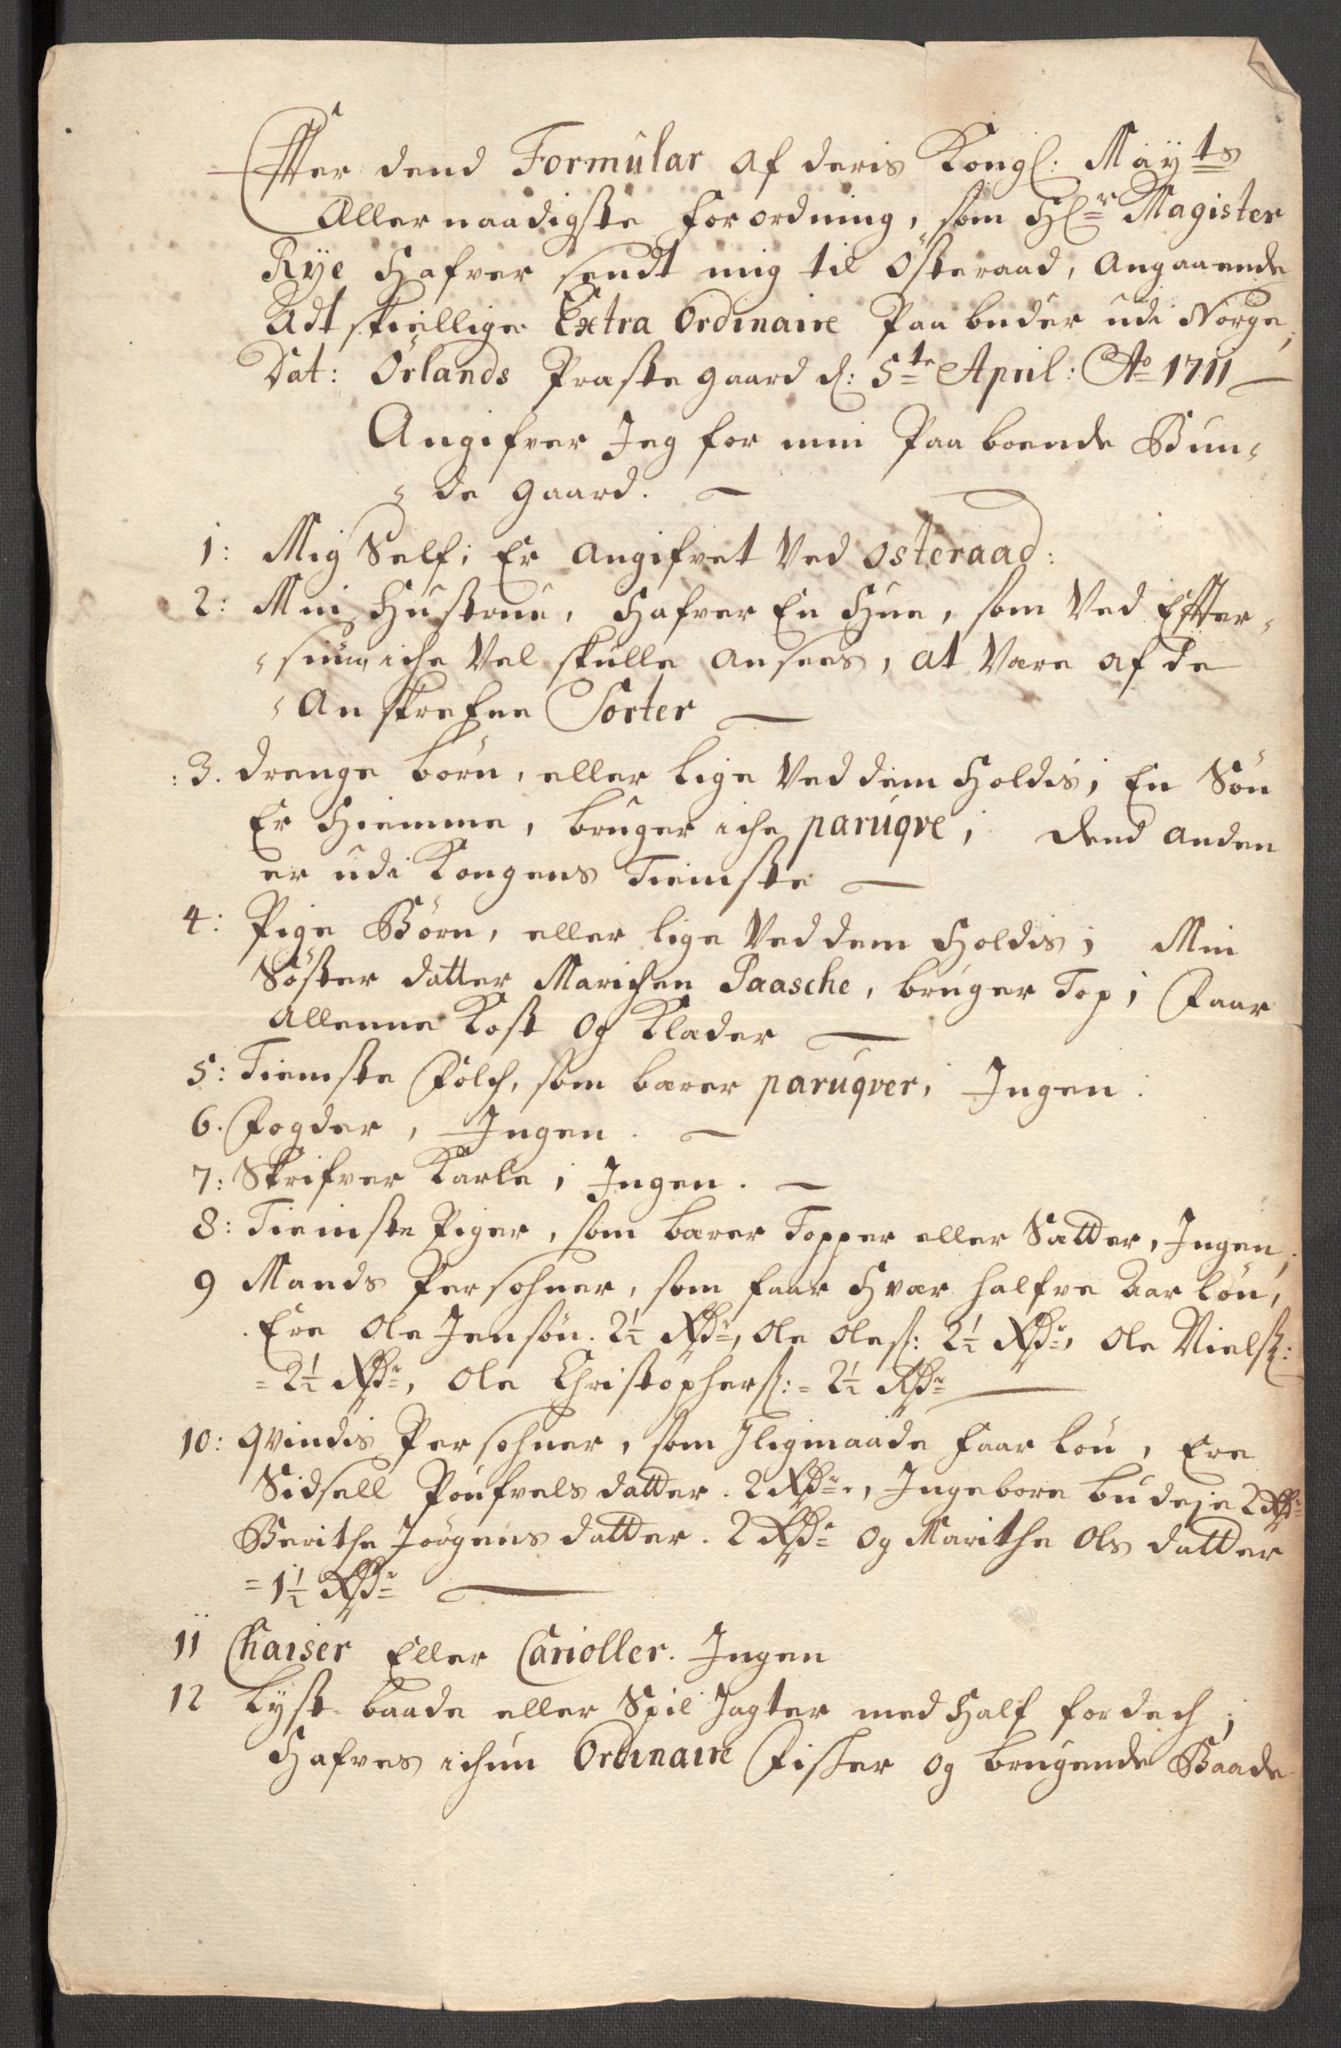 Effter dend Formular af deris Kongl: Mayts
Allernaadigste forordning, som Hr Magister
Rÿe Hafver sendt mig til Østeraad, angaaende
Adtskiellige Extra Ordinaire Paabuder udi Norge,
Dat: Ørlands Præstegaard d: 5te April: Ao 1711
Angifver Jeg for min Paaboende Bun-
de gaard.
1: Mig Self; Er angifvet Ved Osteraad:
2: Min Hustrue, Hafver En Hue, som Ved Effter-
siun iche Vel skulle ansees, at Være af de
Anskrefne Sorter
3. drenge børn, eller lige Ved dem Holdis; En Søn
Er Hiemme, bruger iche paruqve; dend anden
er udi Kongens Tieniste
4: Pige Børn, eller lige Ved dem Holdis; Min
Søster datter Marichen Paasche, bruger Top; Faar
allenne Kost og Klæder
5: Tieniste Folch, som bærer paruqver, Ingen.
6. Fogder, Ingen.
7: Skrifver Karle; Ingen.
8: Tieniste Piger, som bærer Topper eller Sætter, Ingen;
9 Mands Persohner, som faar Hvær halfve Aar løn,
Ere Ole Jensøn. 2½ Rdr, Ole Oles: 2½ Rdr, Ole Niels:
= 2½ Rdr, Ole Christophers: = 2½ Rdr
10: qvindis Persohner, som Jligmaade faar løn, Ere
Sidsell Poufvels datter. 2 Rdr, Ingebore budeje 2 Rdr
Berithe Jørgens datter. 2 Rdr og Marithe Ols datter
= 1½ Rdr
11 Chaiser Eller Carioller. Ingen
12 Lyst baade eller Spil Jagter med Half fordech;
Hafves ichun Ordinaire Fisker og brugende Baade